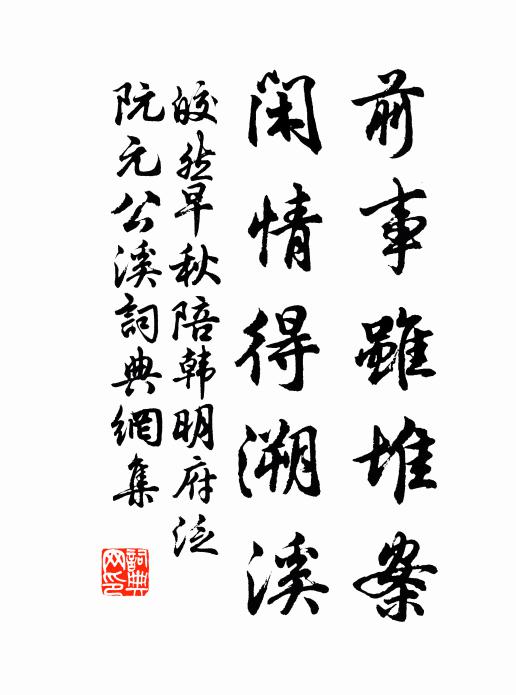 前事雖堆案
閑情得溯溪
皎然早秋陪韩明府泛
阮元公溪詞典網集
詞典
网印